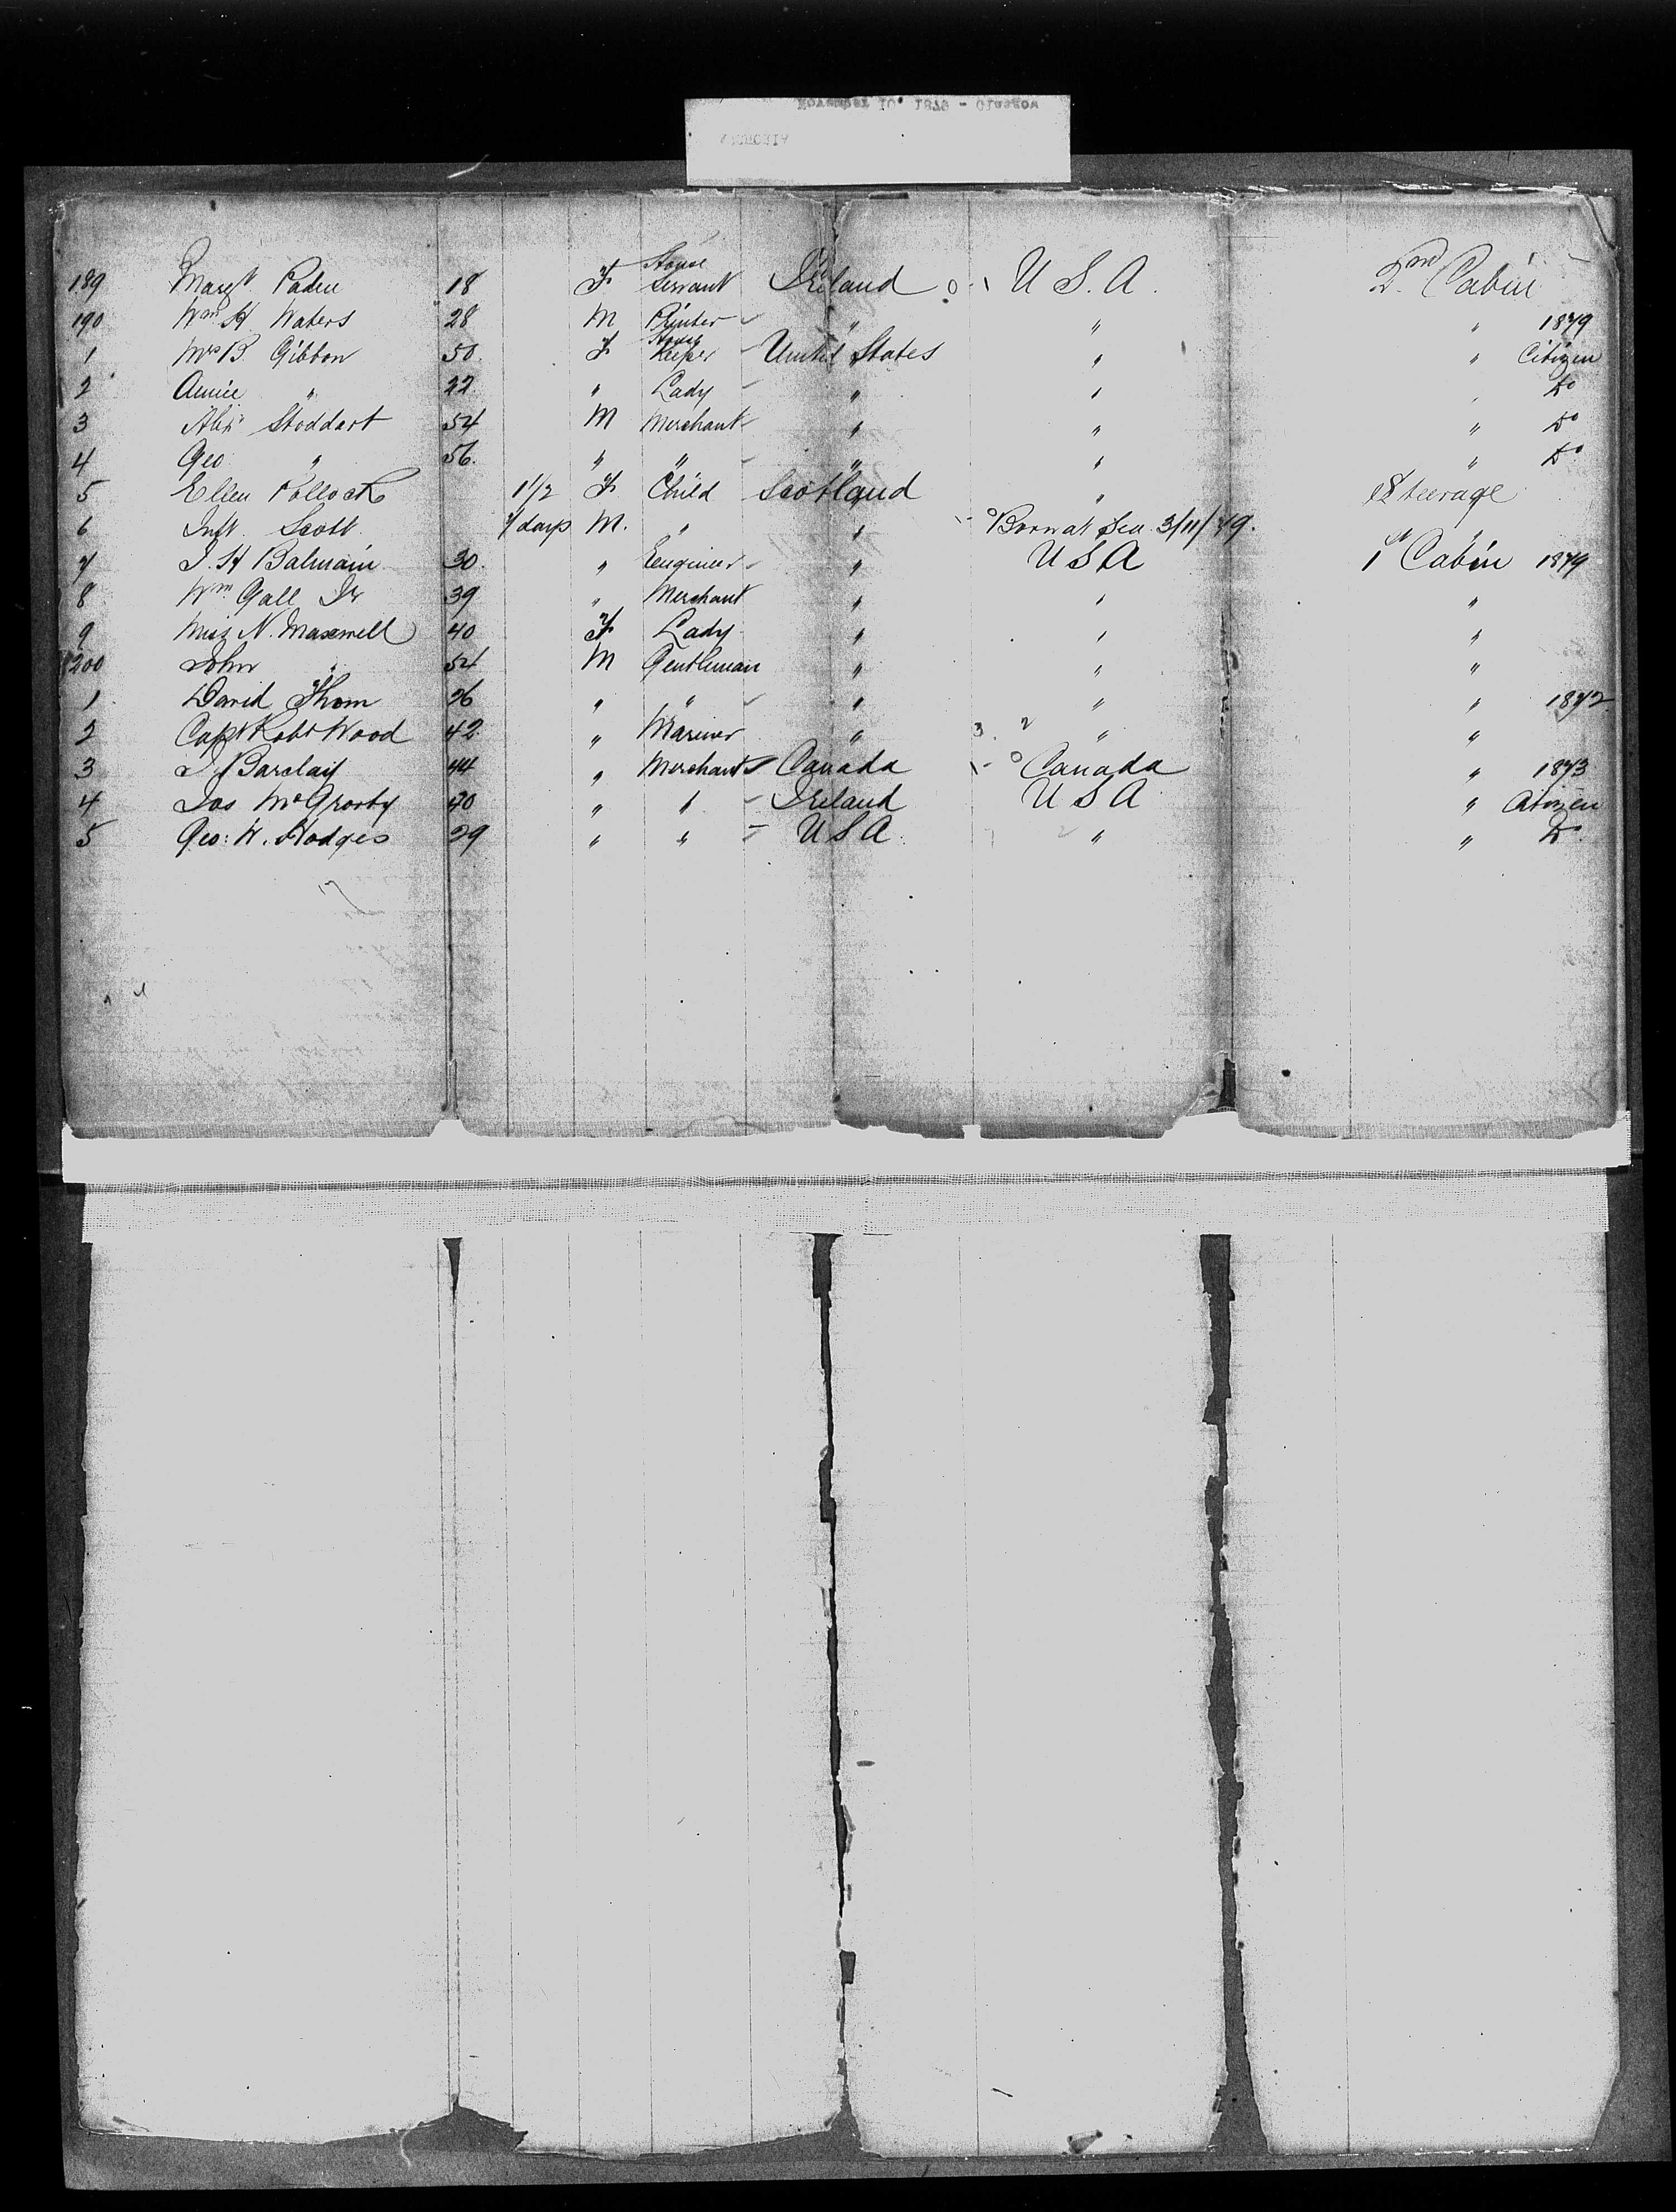 189 Margt Paden 18 F House Servant Ireland U.S.A. 2nd Cabin
190 Wm H Waters 28 M Printer " " " 1879
1 Mrs B. Gibbon 50 F House Keeper United States " " Citizen
2 Annie " 22 " Lady " " " Do
3 Alex Stoddart 54 M Merchant " " " Do
4 Geo " 56 " " " " " Do
5 Ellen Pollock 1 1/2 F Child Scotland " Steerage
6 Inft. Scott 7 days M. " " Born at Sea 3/11/79. "
7 J. H Balmain 30 " Engineer " U S A 1st Cabin 1879
8 Wm Gall Jr 39 " Merchant " " "
9 Miss N. Maxwell 40 F Lady " " "
200 John " 54 M Gentleman " " "
1 David Thom 26 " " " " " 1872
2 Capt Robt Wood 42 " Mariner " " "
3 J Barclay 44 " Merchant Canada Canada " 1873
4 Jas 40 " " Ireland U S A " Citizen
5 Geo: W. Hodges 29 " " U S A " " Do